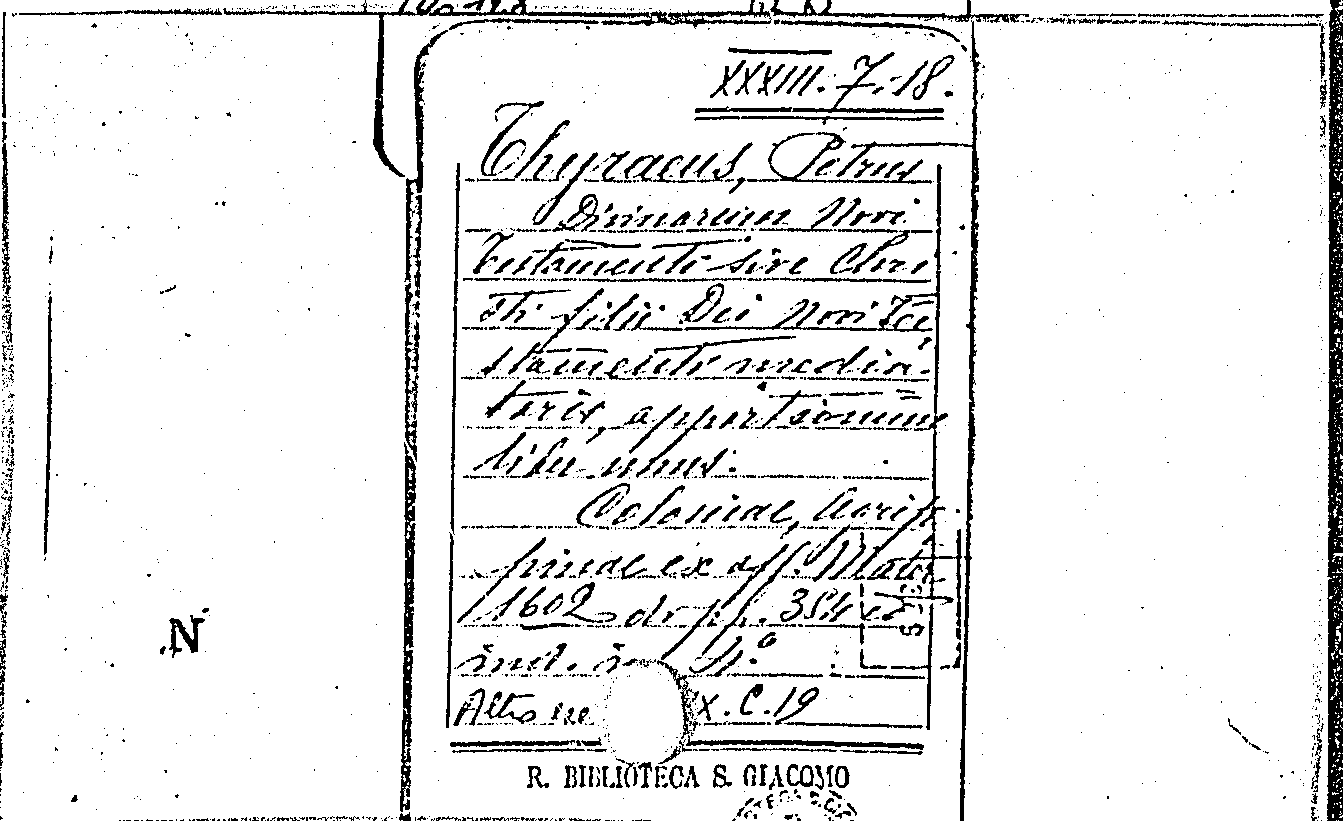 XXXIII. 7.-18.
Thyraeus, Petrus
Divinarum Novi
Testamenti sive Chri
sti filii Dei Novi Te
stamenti media-
toris, apparitionum
liber unus.
Coloniae, Agrip
pinae ex off. Mater
1602 di pp. 354 ed
ind. in 4.º
Altro es X.C.19
N
R. BIBLIOTECA S. GIACOMO